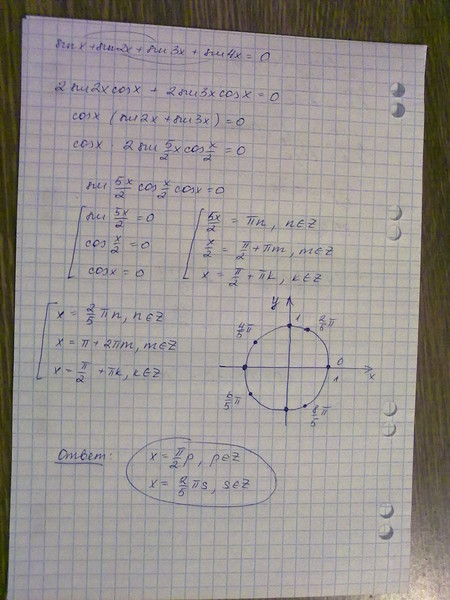 sin x + sin 2x + sin 3x + sin 4x = 0
2 sin 2x cos x + 2 sin 3x cos x = 0
cos x (sin 2x + sin 3x) = 0
cos x · 2 sin 5/2 x cos x/2 = 0
sin 5x/2 cos x/2 cos x = 0
[ sin 5x/2 = 0
cos x/2 = 0
cos x = 0
[ 5x/2 = πn, n∈Z
x/2 = π/2 + πm, m∈Z
x = π/2 + πk, k∈Z
[ x = 2/5 πn, n∈Z
x = π + 2πm, m∈Z
x = π/2 + πk, k∈Z
y
1
2/5 π
4/5 π
0
1
x
6/5 π
8/5 π
Ответ:
x = π/2 p, p∈Z
x = 2/5 πs, s∈Z